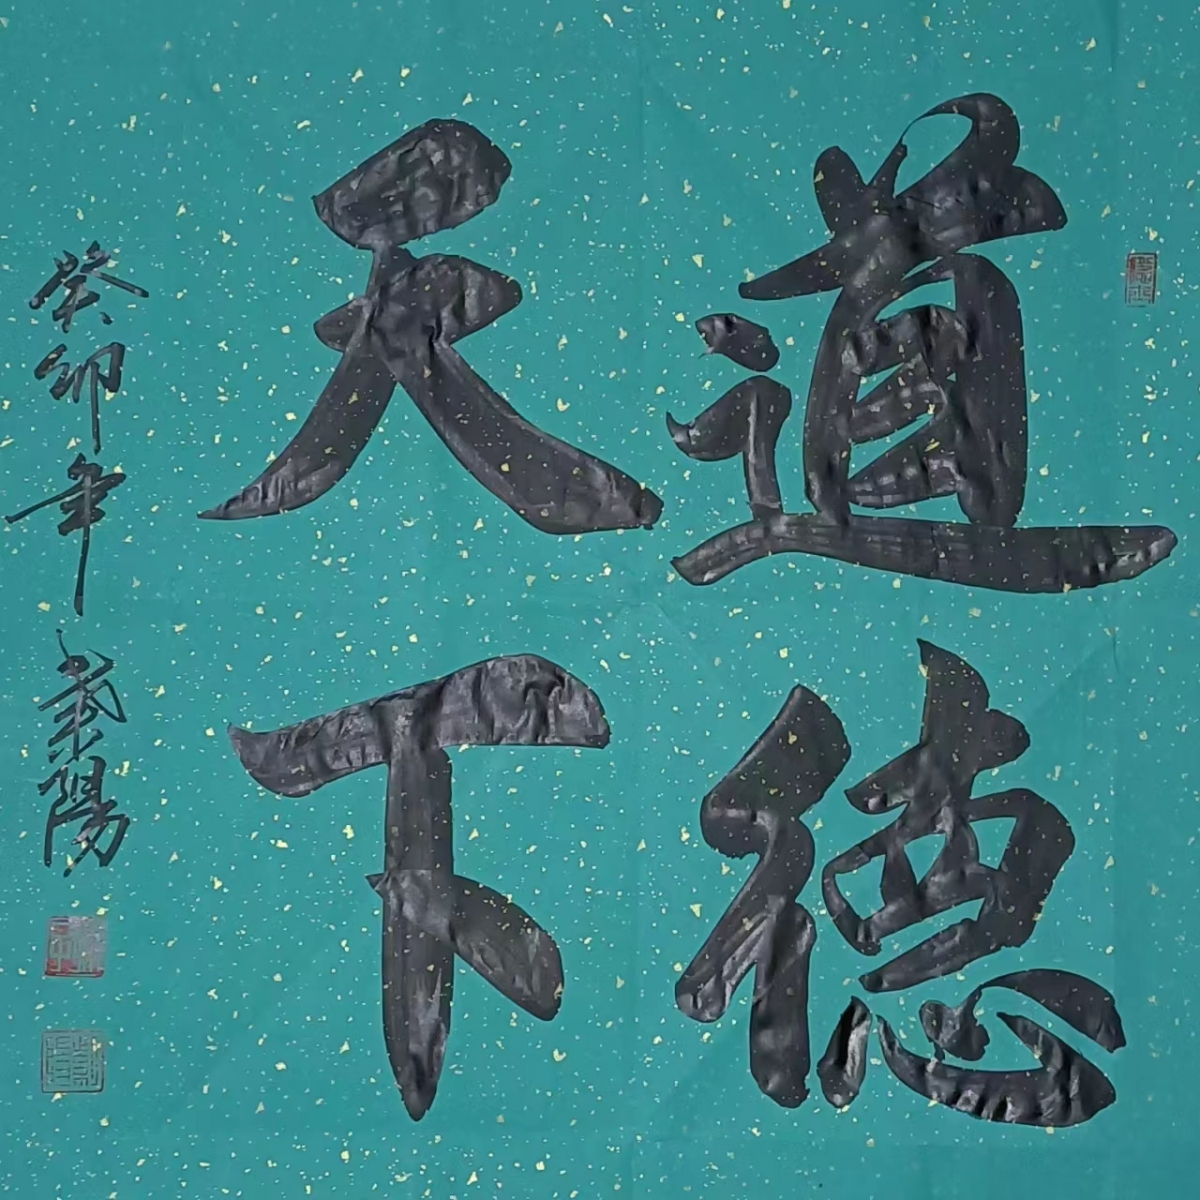 道德
天下
癸卯年 紫陽